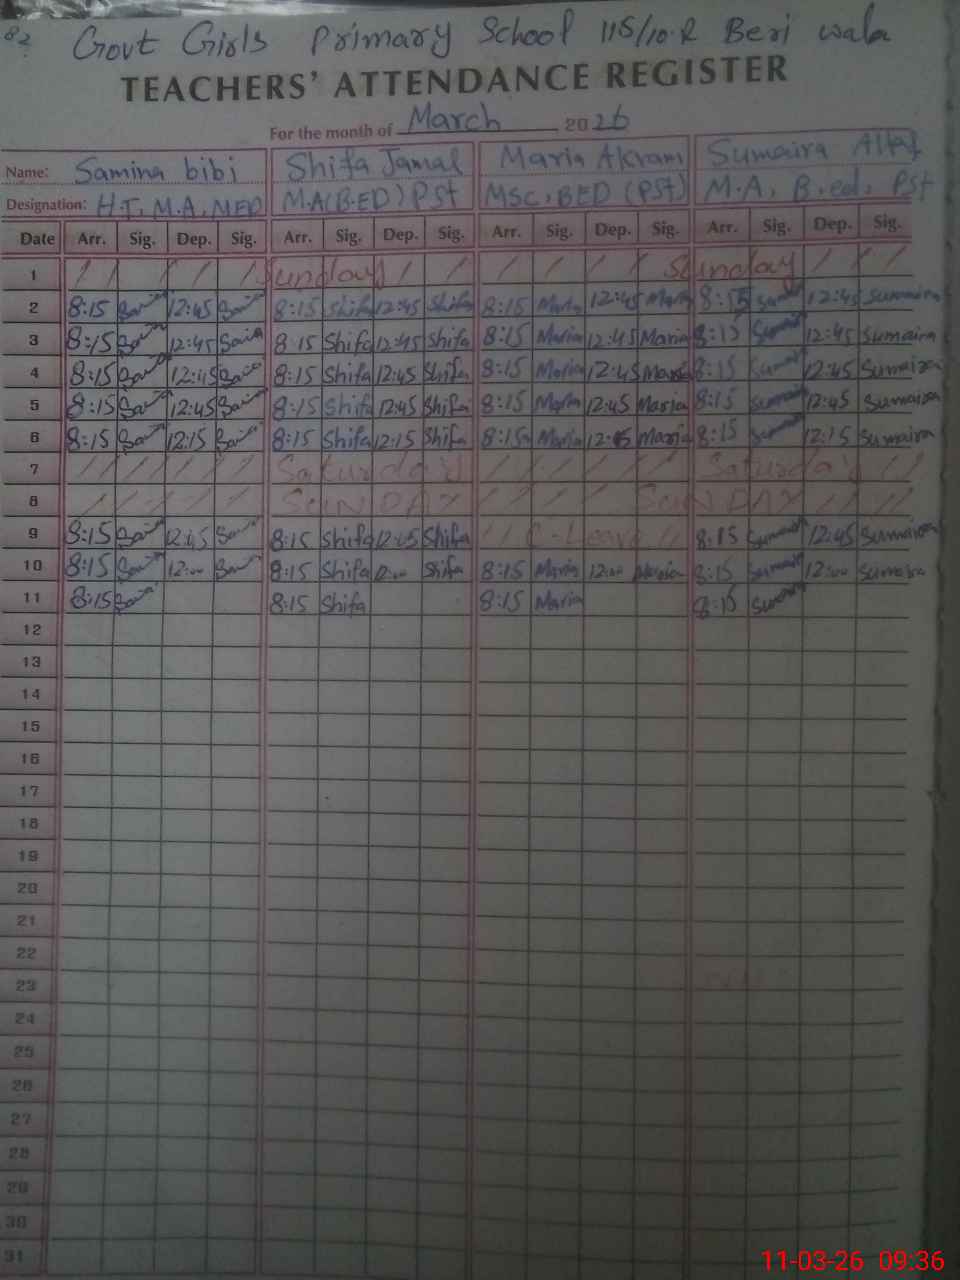 82
Govt Girls Primary School 115/10.R Beri wala
TEACHERS' ATTENDANCE REGISTER
For the month of March 2026
Name: Samina bibi Shifa Jamal Maria Akram Sumaira Altaf
Designation: H.T, M.A, MED M.A(B.ED) Pst MSC, BED (PSt) M.A, B.ed, Pst
Date Arr. Sig. Dep. Sig. Arr. Sig. Dep. Sig. Arr. Sig. Dep. Sig. Arr. Sig. Dep. Sig.
1 / / / / / Sunday / / / / / / Sunday / / /
2 8:15 12:45 8:15 Shifa 12:45 Shifa 8:15 Maria 12:45 Maria 8:15 Sumaira 12:45 Sumaira
3 8:15 12:45 8:15 Shifa 12:45 Shifa 8:15 Maria 12:45 Maria 8:15 Sumaira 12:45 Sumaira
4 8:15 12:45 8:15 Shifa 12:45 Shifa 8:15 Maria 12:45 Maria 8:15 Sumaira 12:45 Sumaira
5 8:15 12:45 8:15 Shifa 12:45 Shifa 8:15 Maria 12:45 Maria 8:15 Sumaira 12:45 Sumaira
6 8:15 12:15 8:15 Shifa 12:15 Shifa 8:15 Maria Maria 8:15 Sumaira 12:15 Sumaira
7 Saturday Saturday
8 SUNDAY SUNDAY
9 8:15 12:45 8:15 Shifa 12:45 Shifa C-Leave 8:15 Sumaira 12:45 Sumaira
10 8:15 12:00 8:15 Shifa 12:00 Shifa 8:15 Maria 12:00 Maria 8:15 Sumaira 12:00 Sumaira
11 8:15 8:15 Shifa 8:15 Maria 8:15 Sumaira
12
13
14
15
16
17
18
19
20
21
22
23
24
25
26
27
28
29
30
31
11-03-26 09:36